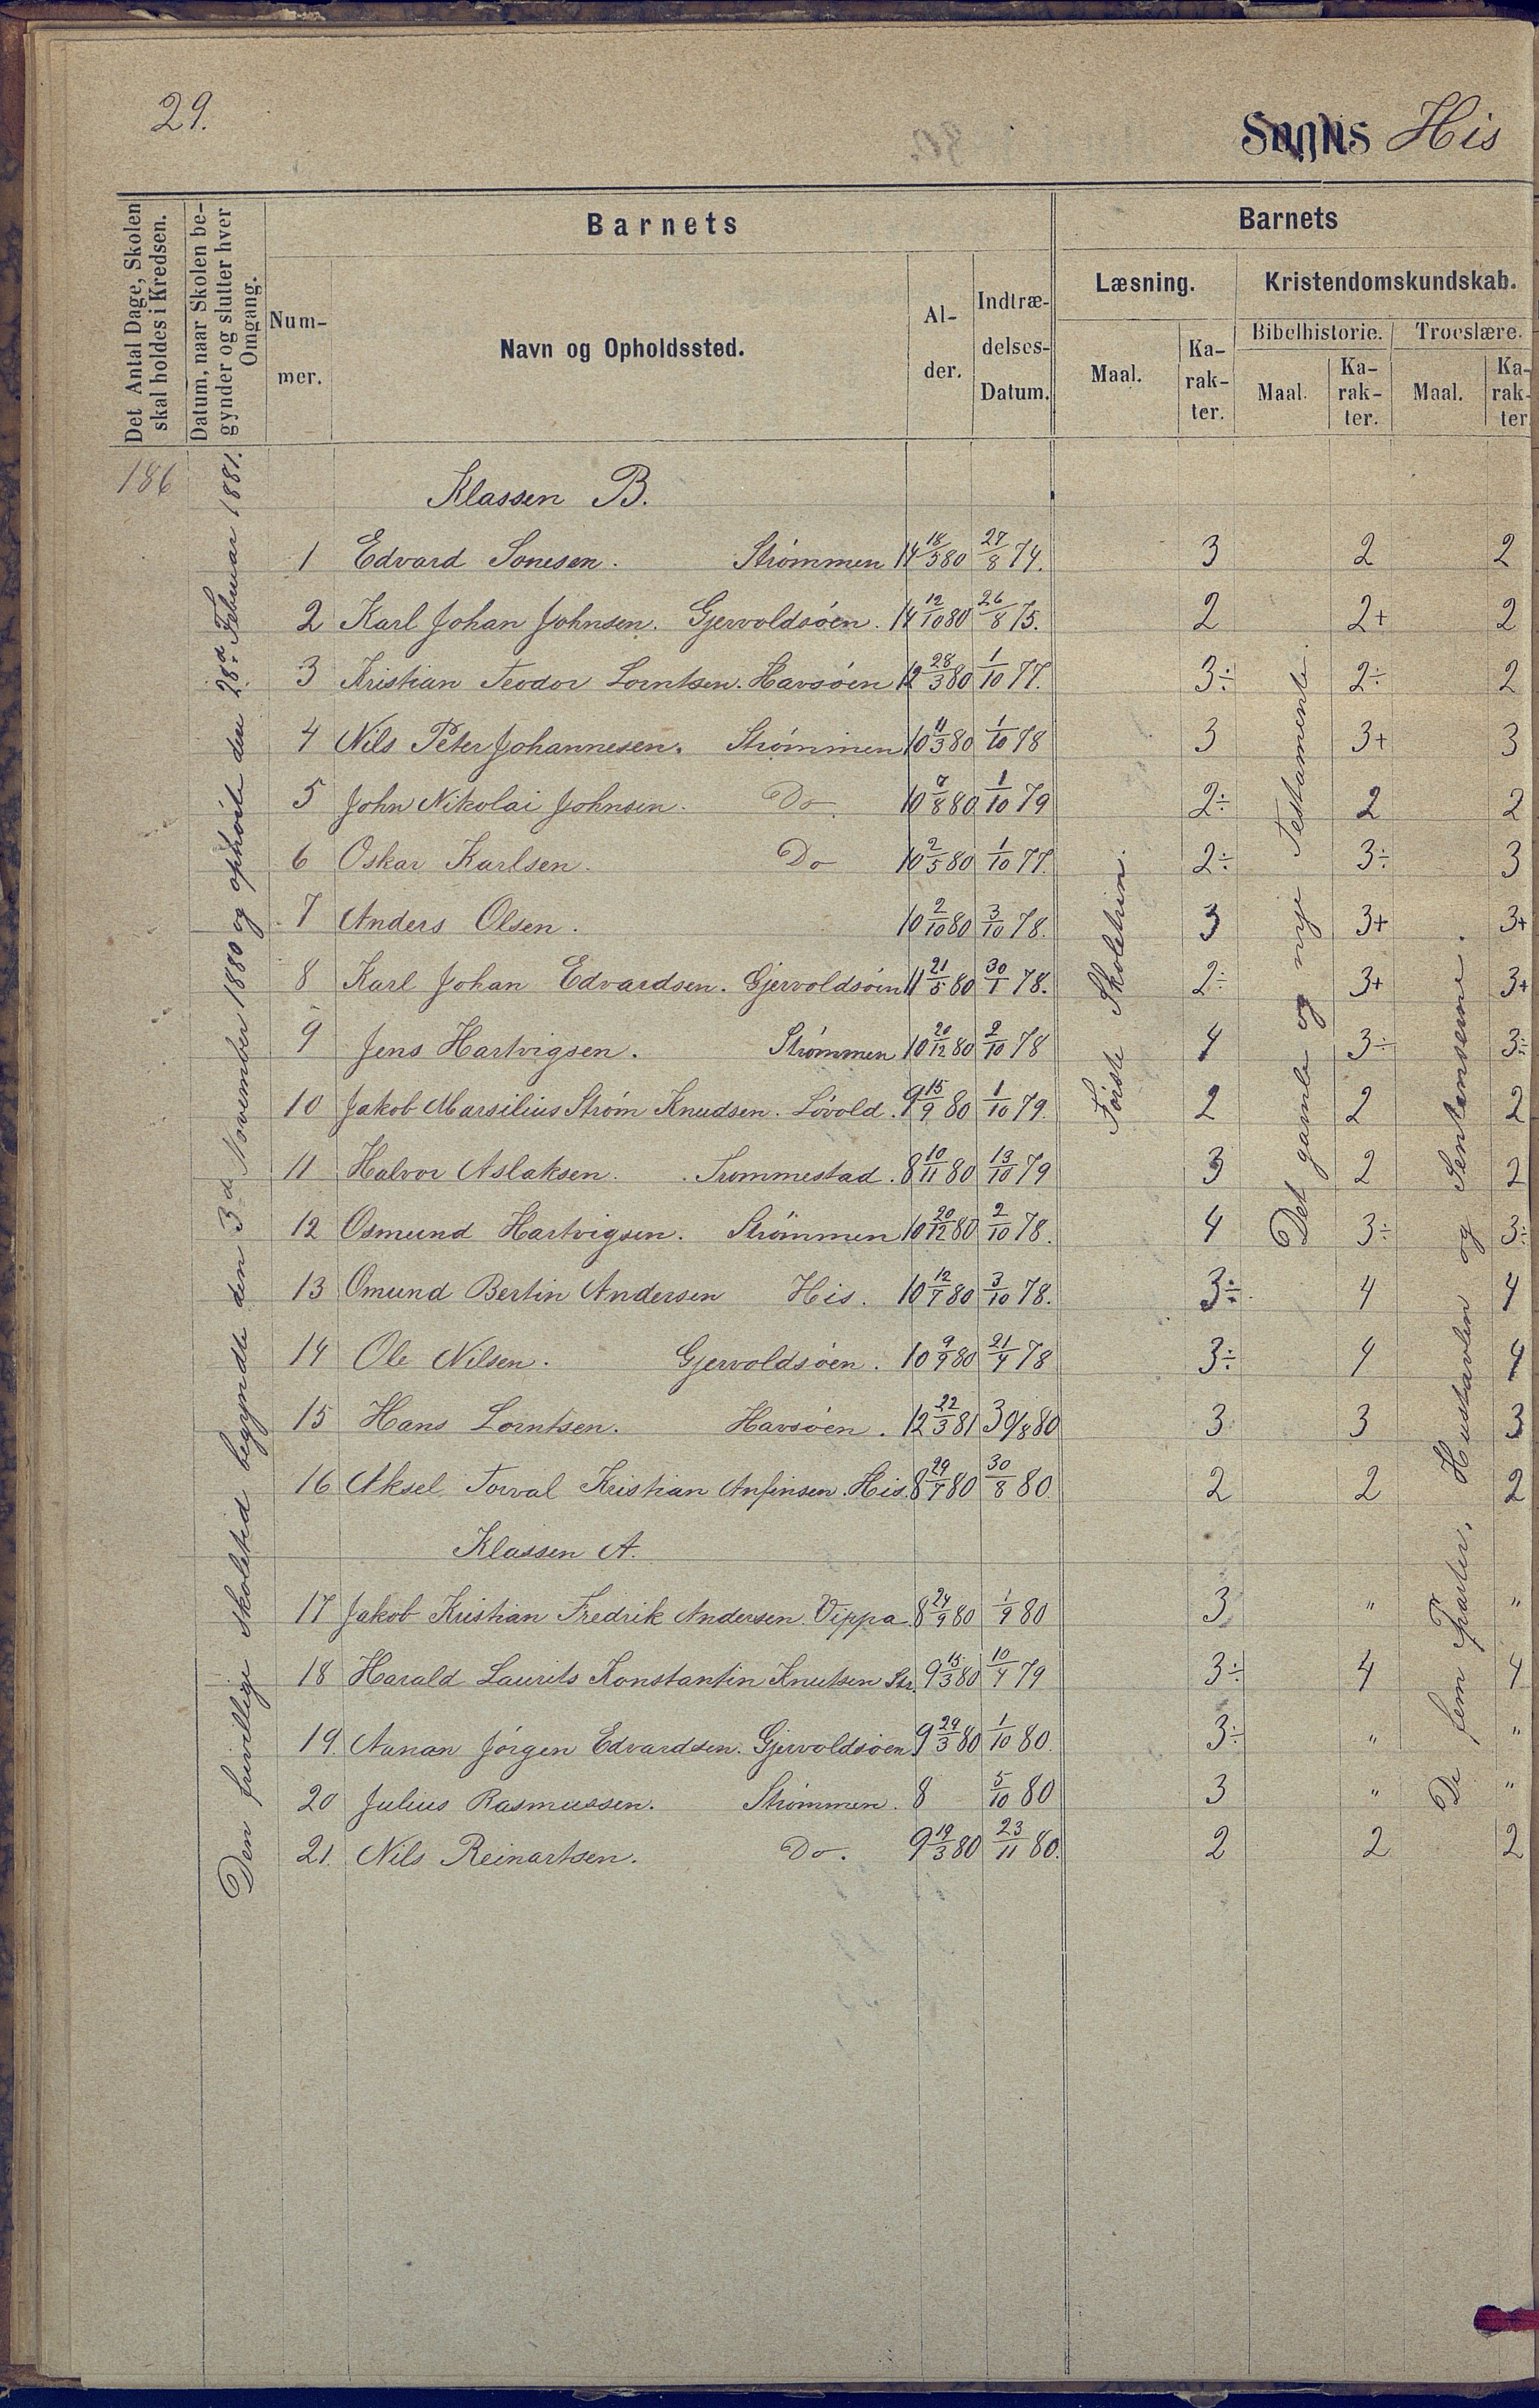 29.
Sogns His
Det Antal Dage, Skolen skal holdes i Kredsen.
Datum, naar Skolen begynder og slutter hver Omgang.
Barnets
Barnets
Num-mer.
Navn og Opholdssted.
Al-der.
Indtræ-delses-Datum.
Læsning.
Kristendomskundskab.
Bibelhistorie.
Troeslære.
Maal.
Ka-rak-ter.
Maal.
Ka-rak-ter.
Maal.
Ka-rak-ter
186
Den frivillige Skoletid begyndte den 3d November 1880 og ophørte den 28d Februar 1881.
Første Skoletrin.
Det gamle og nye Testamente.
De fem Parter, Hustavlen og Sentenserne.
Klassen B.
1 Edvard Sonesen. Strømmen 14 18/5 80 27/8 74. 3 2 2
2 Karl Johan Johnsen. Gjervoldsöen. 14 12/10 80 26/8 75. 2 2+ 2
3 Kristian Teodor Lorntsen. Havsöen 12 28/3 80 1/10 77. 3÷ 2÷ 2
4 Nils Peter Johannesen. Strømmen 10 11/3 80 1/10 78 3 3+ 3
5 John Nikolai Johnsen. Do. 10 7/8 80 1/10 79 2÷ 2 2
6 Oskar Karlsen. Do 10 2/5 80 1/10 77. 2÷ 3÷ 3
7 Anders Olsen. 10 2/10 80 3/10 78. 3 3+ 3+
8 Karl Johan Edvardsen. Gjervoldsöen 11 21/5 80 30/1 78. 2÷ 3+ 3+
9 Jens Hartvigsen. Strømmen 10 20/12 80 2/10 78 4 3÷ 3÷
10 Jakob Marsilius Strøm Knudsen. Lövold. 9 15/9 80 1/10 79. 2 2 2
11 Halvor Aslaksen. Trommestad. 8 10/11 80 13/10 79 3 2 2
12 Osmund Hartvigsen. Strømmen 10 20/12 80 2/10 78. 4 3÷ 3÷
13 Omund Bertin Andersen His. 10 12/7 80 3/10 78. 3÷ 4 4
14 Ole Nilsen. Gjervoldsöen. 10 9/9 80 21/4 78 3÷ 4 4
15 Hans Lorntsen. Havsöen. 12 22/3 81 30/8 80 3 3 3
16 Aksel Torval Kristian Anfinsen. His. 8 29/7 80 30/8 80 2 2 2
Klassen A.
17 Jakob Kristian Fredrik Andersen Vippa. 8 24/9 80 1/9 80 3 " "
18 Harald Laurits Konstantin Knutsen Str. 9 15/3 80 10/4 79 3÷ 4 4
19. Aanan Jörgen Edvardsen. Gjervoldsöen 9 29/3 80 1/10 80. 3÷ " "
20 Julius Rasmussen. Strømmen. 8 5/10 80 3 " "
21. Nils Reinartsen. Do. 9 19/3 80 23/11 80. 2 2 2